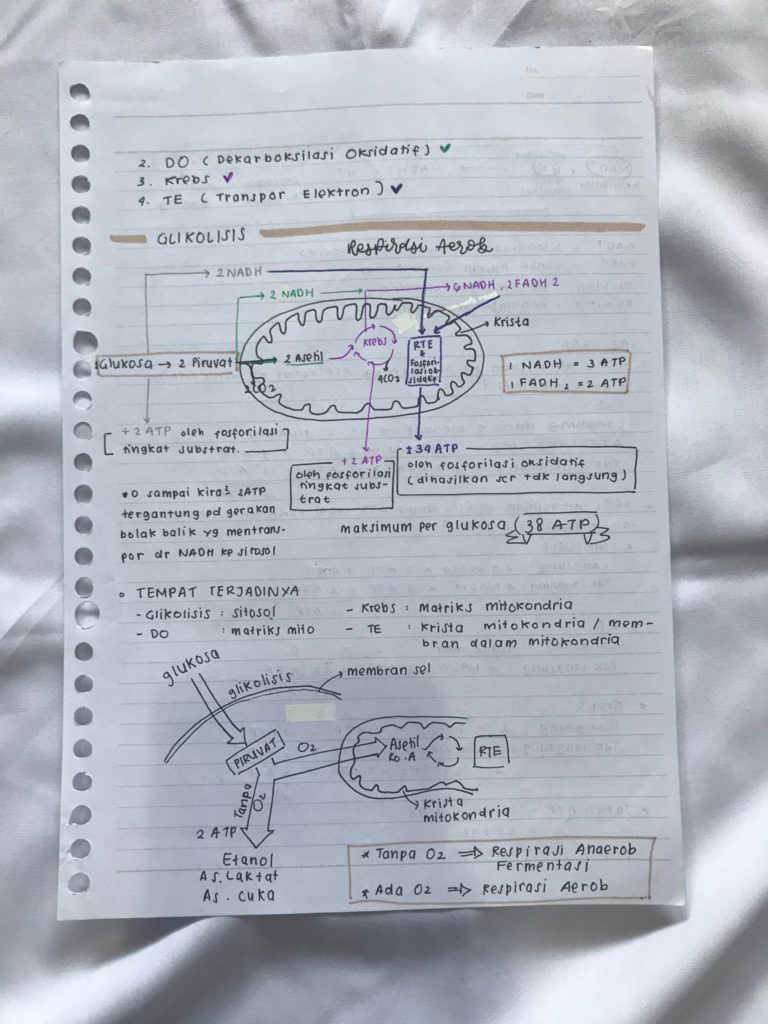 No.
Date
2. DO (Dekarboksilasi Oksidatif)
3. Krebs
4. TE (Transpor Elektron)
GLIKOLISIS
Respirasi Aerob
2 NADH
2 NADH
6 NADH, 2 FADH 2
Krista
Glukosa → 2 Piruvat
2 Asetil
Krebs
RTE
&
Fosfori-
lasi ok-
sidatif
2CO2
4CO2
1 NADH = 3 ATP
1 FADH2 = 2 ATP
+ 2 ATP oleh fosforilasi
tingkat substrat.
+ 2 ATP
oleh fosforilasi
tingkat subs-
trat
± 34 ATP
oleh fosforilasi oksidatif
(dihasilkan scr tdk langsung)
*0 sampai kira² 2ATP
tergantung pd gerakan
bolak balik yg mentrans-
por dr NADH ke sitosol
maksimum per glukosa 38 ATP
TEMPAT TERJADINYA
- Glikolisis : sitosol
- DO : matriks mito
- Krebs : Matriks mitokondria
- TE : Krista mitokondria / mem-
bran dalam mitokondria
glukosa
glikolisis
membran sel
PIRUVAT
O2
Asetil
Ko.A
RTE
Tanpa
O2
Krista
mitokondria
2 ATP
Etanol
As. Laktat
As. Cuka
* Tanpa O2 ⇒ Respirasi Anaerob
Fermentasi
* Ada O2 ⇒ Respirasi Aerob